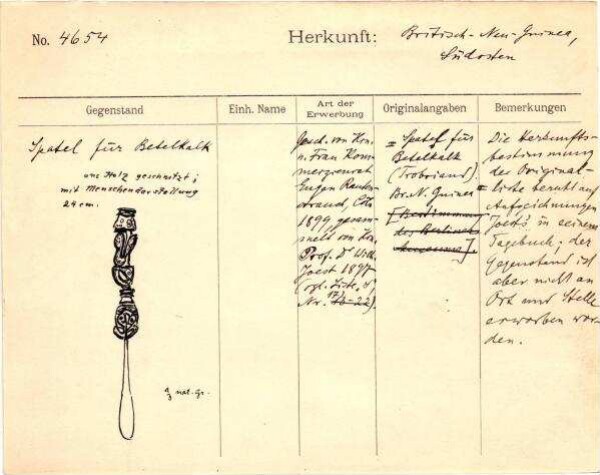 No. 4654
Herkunft: Britisch-Neu-Guinea,
Südosten
Gegenstand
Einh. Name
Art der
Erwerbung
Originalangaben
Bemerkungen
Spatel für Betelkalk
aus Holz geschnitzt;
mit Menschendarstellung
24 cm.
nat. Gr.
Gesch. von Hrn.
u. Frau Kom-
merzienrat
Eugen Rauten-
strauch, Cöln
1899, gesam-
melt von Hrn.
Prof. Dr Wilh.
Joest 1897
(vgl. Liste
Nr. 22).
= Spatel für
Betelkalk
(Trobriand).
Br. N. Guinea =
[Bestimmung
des Berliner
Museums].
Die Herkunfts-
bestimmung
des Original-
liste beruht auf
Aufzeichnungen
Joest's in seinem
Tagebuch; der
Gegenstand ist
aber nicht an
Ort und Stelle
erworben wor-
den.